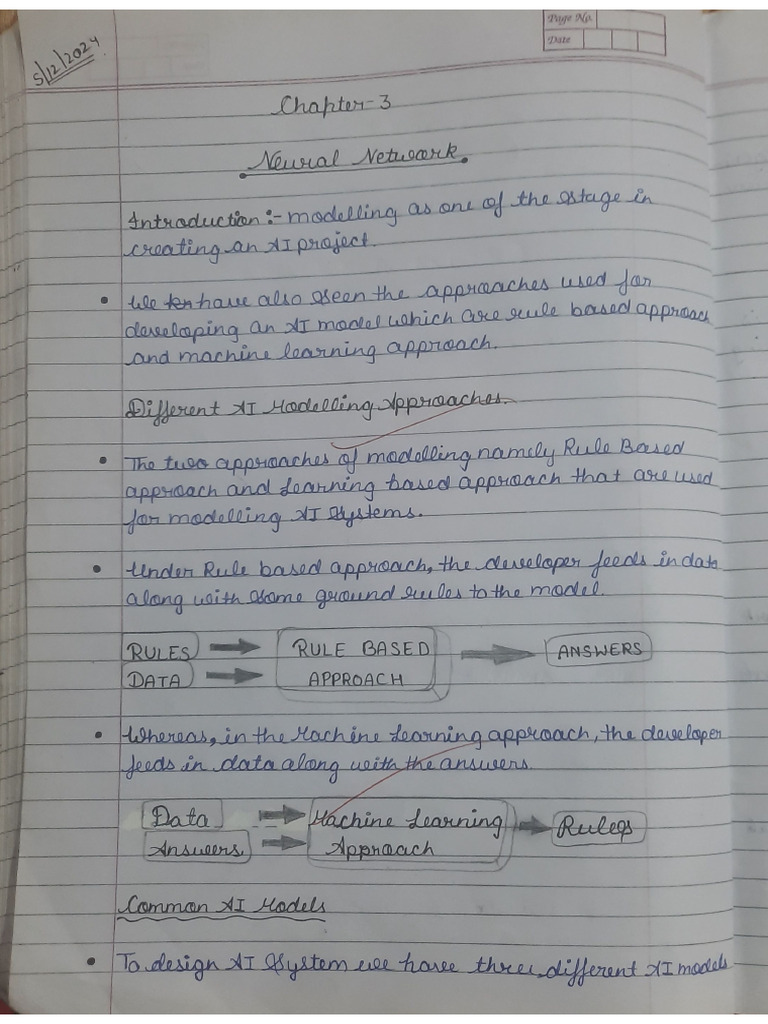 Page No.
Date
5/12/2024
Chapter-3
Neural Network
Introduction :- modelling as one of the stage in
creating an AI project.
• We have also seen the approaches used for
developing an AI model which are rule based approach
and machine learning approach.
Different AI Modelling Approaches.
• The two approaches of modelling namely Rule Based
approach and Learning based approach that are used
for modelling AI Systems.
• Under Rule based approach, the developer feeds in data
along with some ground rules to the model.
RULES RULE BASED ANSWERS
DATA APPROACH
• Whereas, in the Machine Learning approach, the developer
feeds in data along with the answers.
Data Machine Learning Rules
Answers Approach
Common AI Models
• To design AI System we have three different AI models